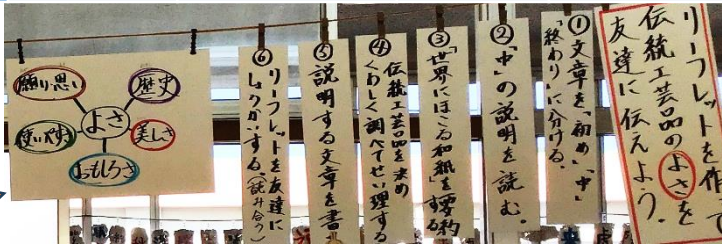 リーフレットを作って
伝統工芸品のよさを
友達に伝えよう。
①文章を「初め」「中」
「終わり」に分ける。
②「中」の説明を読む。
③「世界にほこる和紙」を要約する
④伝統工芸品を決め
くわしく調べてせい理する
⑤説明する文章を書
⑥リーフレットを友達に
しょうかいする(読み合う)
よさ
歴史
美しさ
おもしろさ
使いやすさ
願い思い